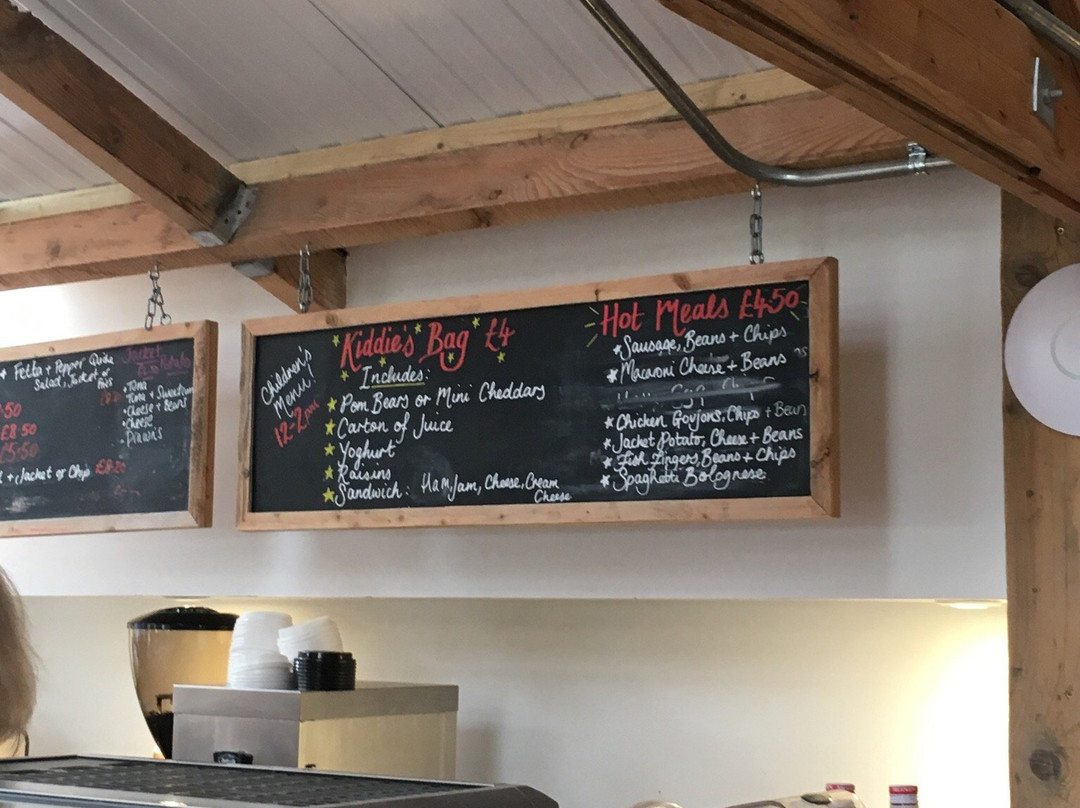 + Fetta + Pepper Quiche
Salad, Jacket or
.50
£8.50
£5.50
+ Jacket or Chips £8.50
Jacket
Potato
Tuna
Tuna + Sweetcorn
Cheese + Beans
Cheese
Prawns
Children's
Menu!
12-2pm
Kiddie's Bag £4
Includes:
Pom Bears or Mini Cheddars
Carton of Juice
Yoghurt
Raisins
Sandwich: Ham, Jam, Cheese, Cream
Cheese
Hot Meals £4.50
Sausage, Beans + Chips
Macaroni Cheese + Beans
Chicken Goujons, Chips + Beans
Jacket Potato, Cheese + Beans
Fish Fingers, Beans + Chips
Spaghetti Bolognese